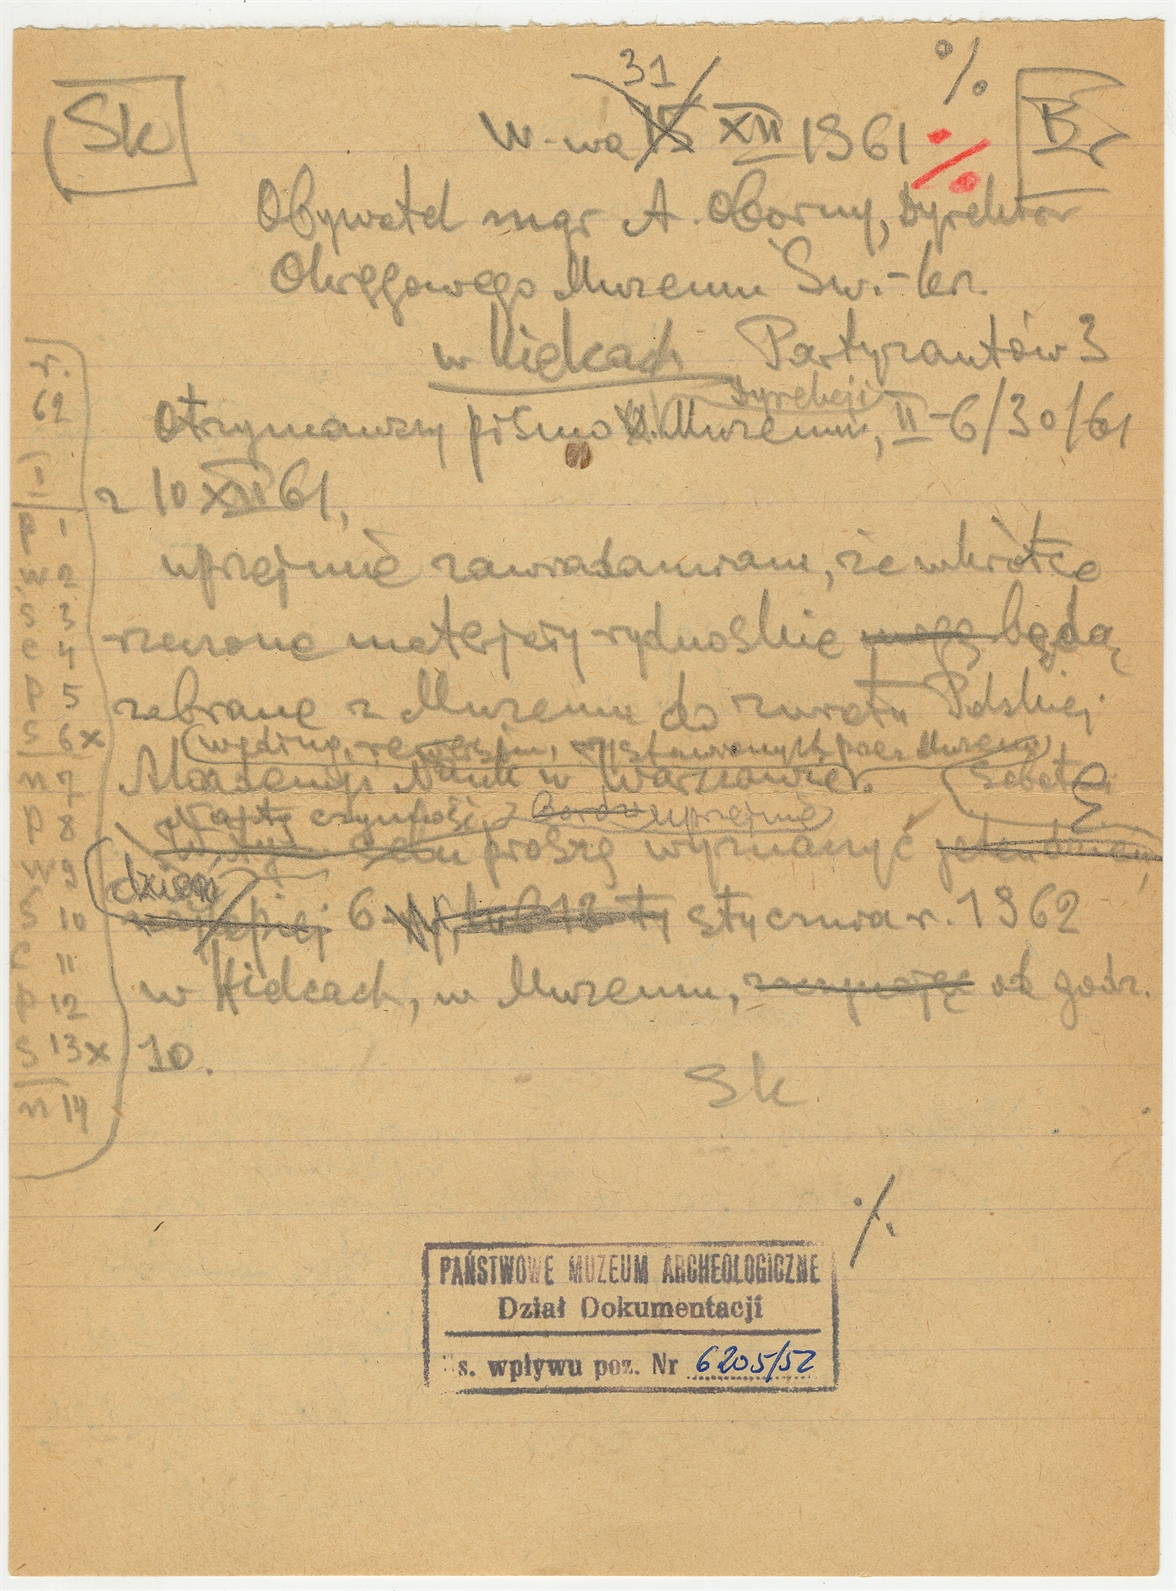 31
%
Sk
W-wa 15 XII 1961
%
B
Obywatel mgr A. Oborny, Dyrektor
Okręgowego Muzeum Św.-krz.
w Kielcach Partyzantów 3
Dyrekcji
Otrzymawszy pismo Muzeum, II-6/30/61
z 10 XII 61,
uprzejmie zawiadamiam, że wkrótce
rzeczone materjały rydnoskie mogą będą
zebrane z Muzeum do zwrotu Polskiej
według rewersów, wystawionych przez Muzeum
Akademji Nauk w Warszawie.
sobota
Na tę czynność, bardzo uprzejmie
W tym celu proszę wyznaczyć
dzień
najlepiej 6 lub 13-ty stycznia r. 1962
w Kielcach, w Muzeum, zaczynając od godz.
10.
Sk.
r.
62
I
p 1
w 2
ś 3
c 4
p 5
s 6x
n 7
p 8
w 9
ś 10
c 11
p 12
s 13x
n 14
%
PAŃSTWOWE MUZEUM ARCHEOLOGICZNE
Dział Dokumentacji
s. wpływu poz. Nr 6205/52